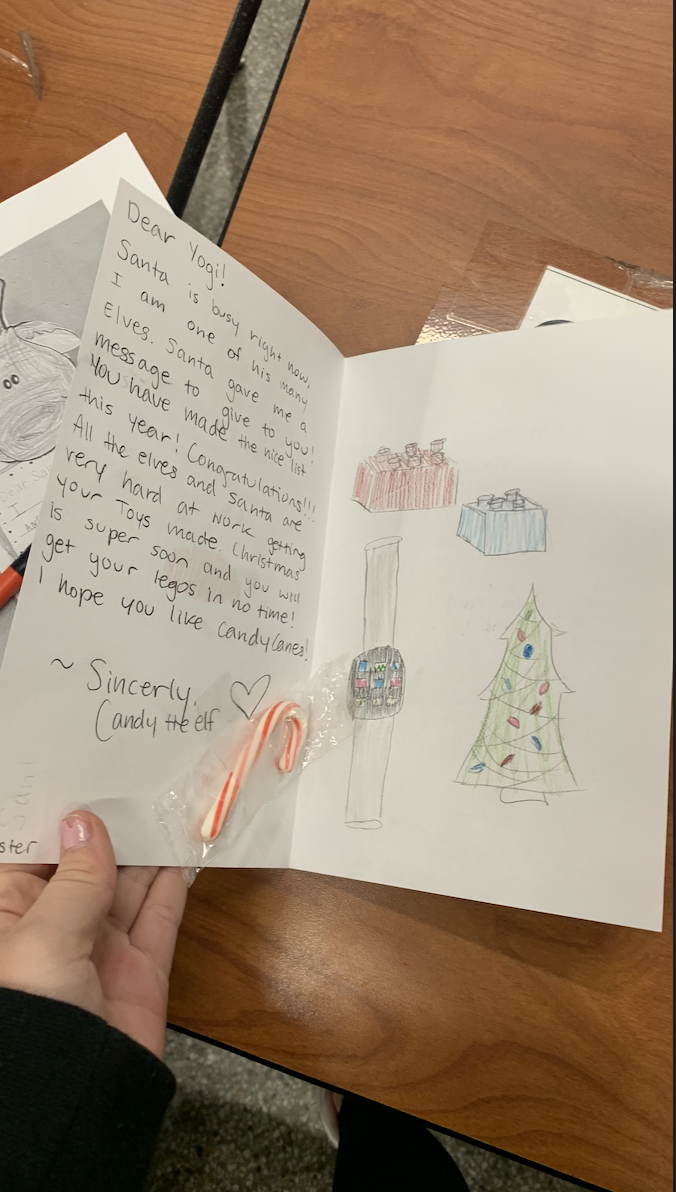 Dear Yogi!
Santa is busy right now,
I am one of his many
Elves. Santa gave me a
message to give to you!
You have made the nice list
this year! Congratulations!!!
All the elves and Santa are
very hard at work getting
your Toys made. Christmas
is super soon and you will
get your legos in no time!
I hope you like Candy Canes!
~ Sincerely,
Candy the elf
Dear San
I
ster